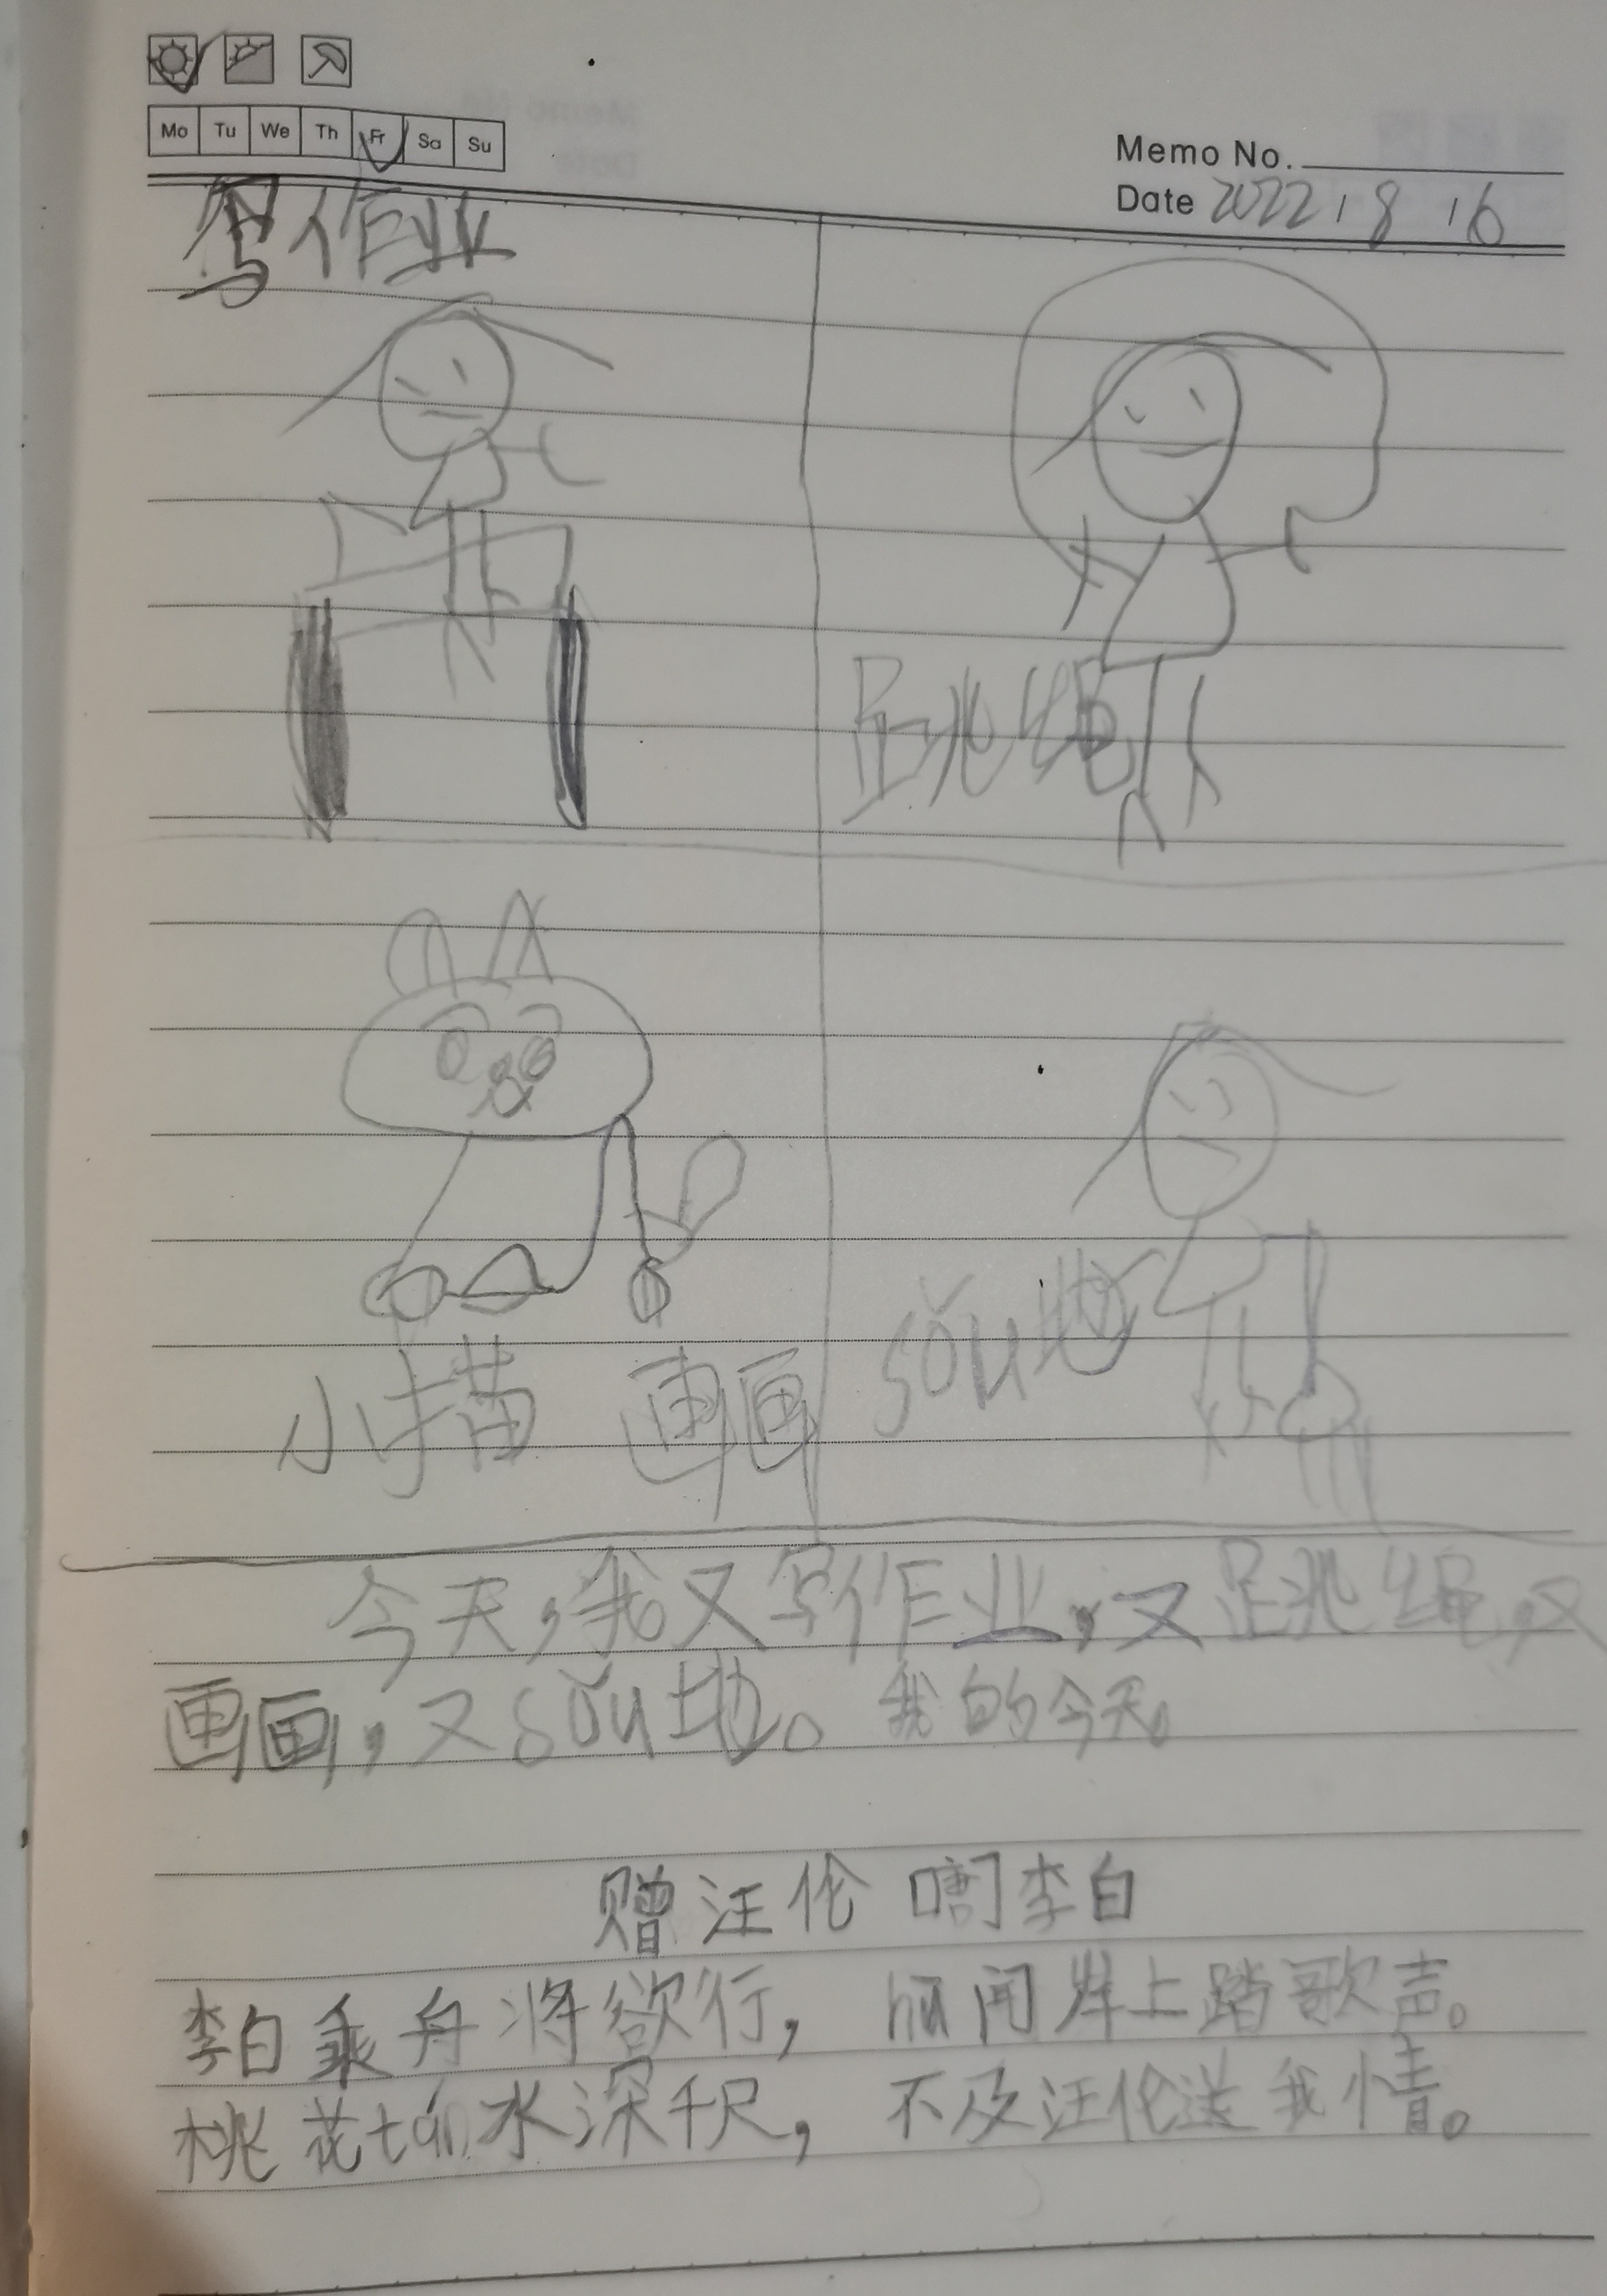 Mo Tu We Th Fr Sa Su
Memo No.
Date 2022,8,16
写作业
跳绳
小猫 画画
sǒu地
今天,我又写作业,又跳绳,又
画画,又sǒu地。我的今天。
赠汪伦 唐 李白
李白乘舟将欲行, hu闻岸上踏歌声。
桃花tán水深千尺, 不及汪伦送我情。